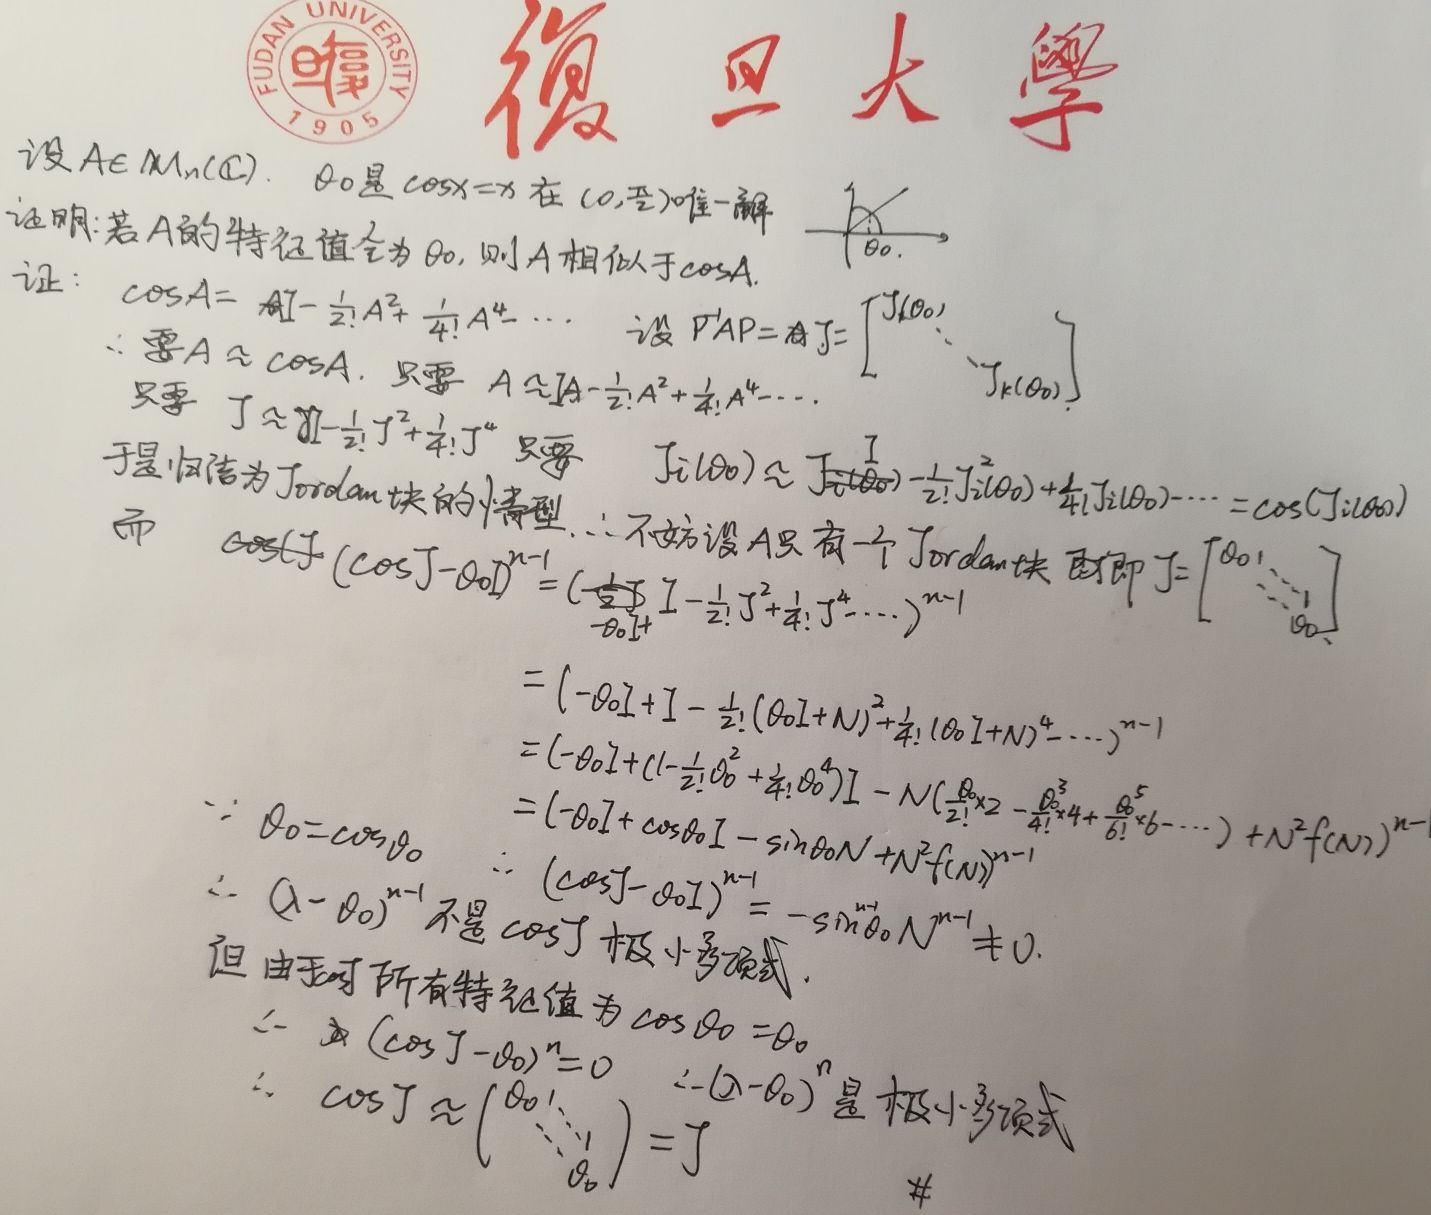 FUDAN UNIVERSITY
1905
復旦大學
设A∈Mn(ℂ). θ0是 cosx=x 在 (0,π/2)唯一解
证明:若A的特征值全为θ0, 则A相似于cosA.
θ0.
证: cosA= I-1/2!A²+1/4!A⁴-… 设 P⁻¹AP=J=[J1(θ0) ⋱ Jk(θ0)].
∴ 要A≈cosA. 只要 A≈I-1/2!A²+1/4!A⁴-….
只要 J≈I-1/2!J²+1/4!J⁴ 只要 Ji(θ0)≈I-1/2!Ji²(θ0)+1/4!Ji(θ0)-…=cos(Ji(θ0))
于是归结为Jordan块的情型. ∴不妨设A只有一个Jordan块 即J=[θ0 1 ⋱ 1 θ0]
而 (cosJ-θ0I)ⁿ⁻¹=(-θ0I+I-1/2!J²+1/4!J⁴-…)ⁿ⁻¹
=(-θ0I+I-1/2!(θ0I+N)²+1/4!(θ0I+N)⁴-…)ⁿ⁻¹
=(-θ0I+(1-1/2!θ0²+1/4!θ0⁴)I-N(θ0/2!×2-θ0³/4!×4+θ0⁵/6!×6-…)+N²f(N))ⁿ⁻¹
=(-θ0I+cosθ0I-sinθ0N+N²f(N))ⁿ⁻¹
∵ θ0=cosθ0 ∴ (cosJ-θ0I)ⁿ⁻¹=-sinⁿ⁻¹θ0Nⁿ⁻¹≠0.
∴ (λ-θ0)ⁿ⁻¹不是cosJ极小多项式.
但由于cosJ所有特征值为cosθ0=θ0
∴ (cosJ-θ0)ⁿ=0 ∴(λ-θ0)ⁿ是极小多项式
∴ cosJ≈(θ0 1 ⋱ 1 θ0)=J
#